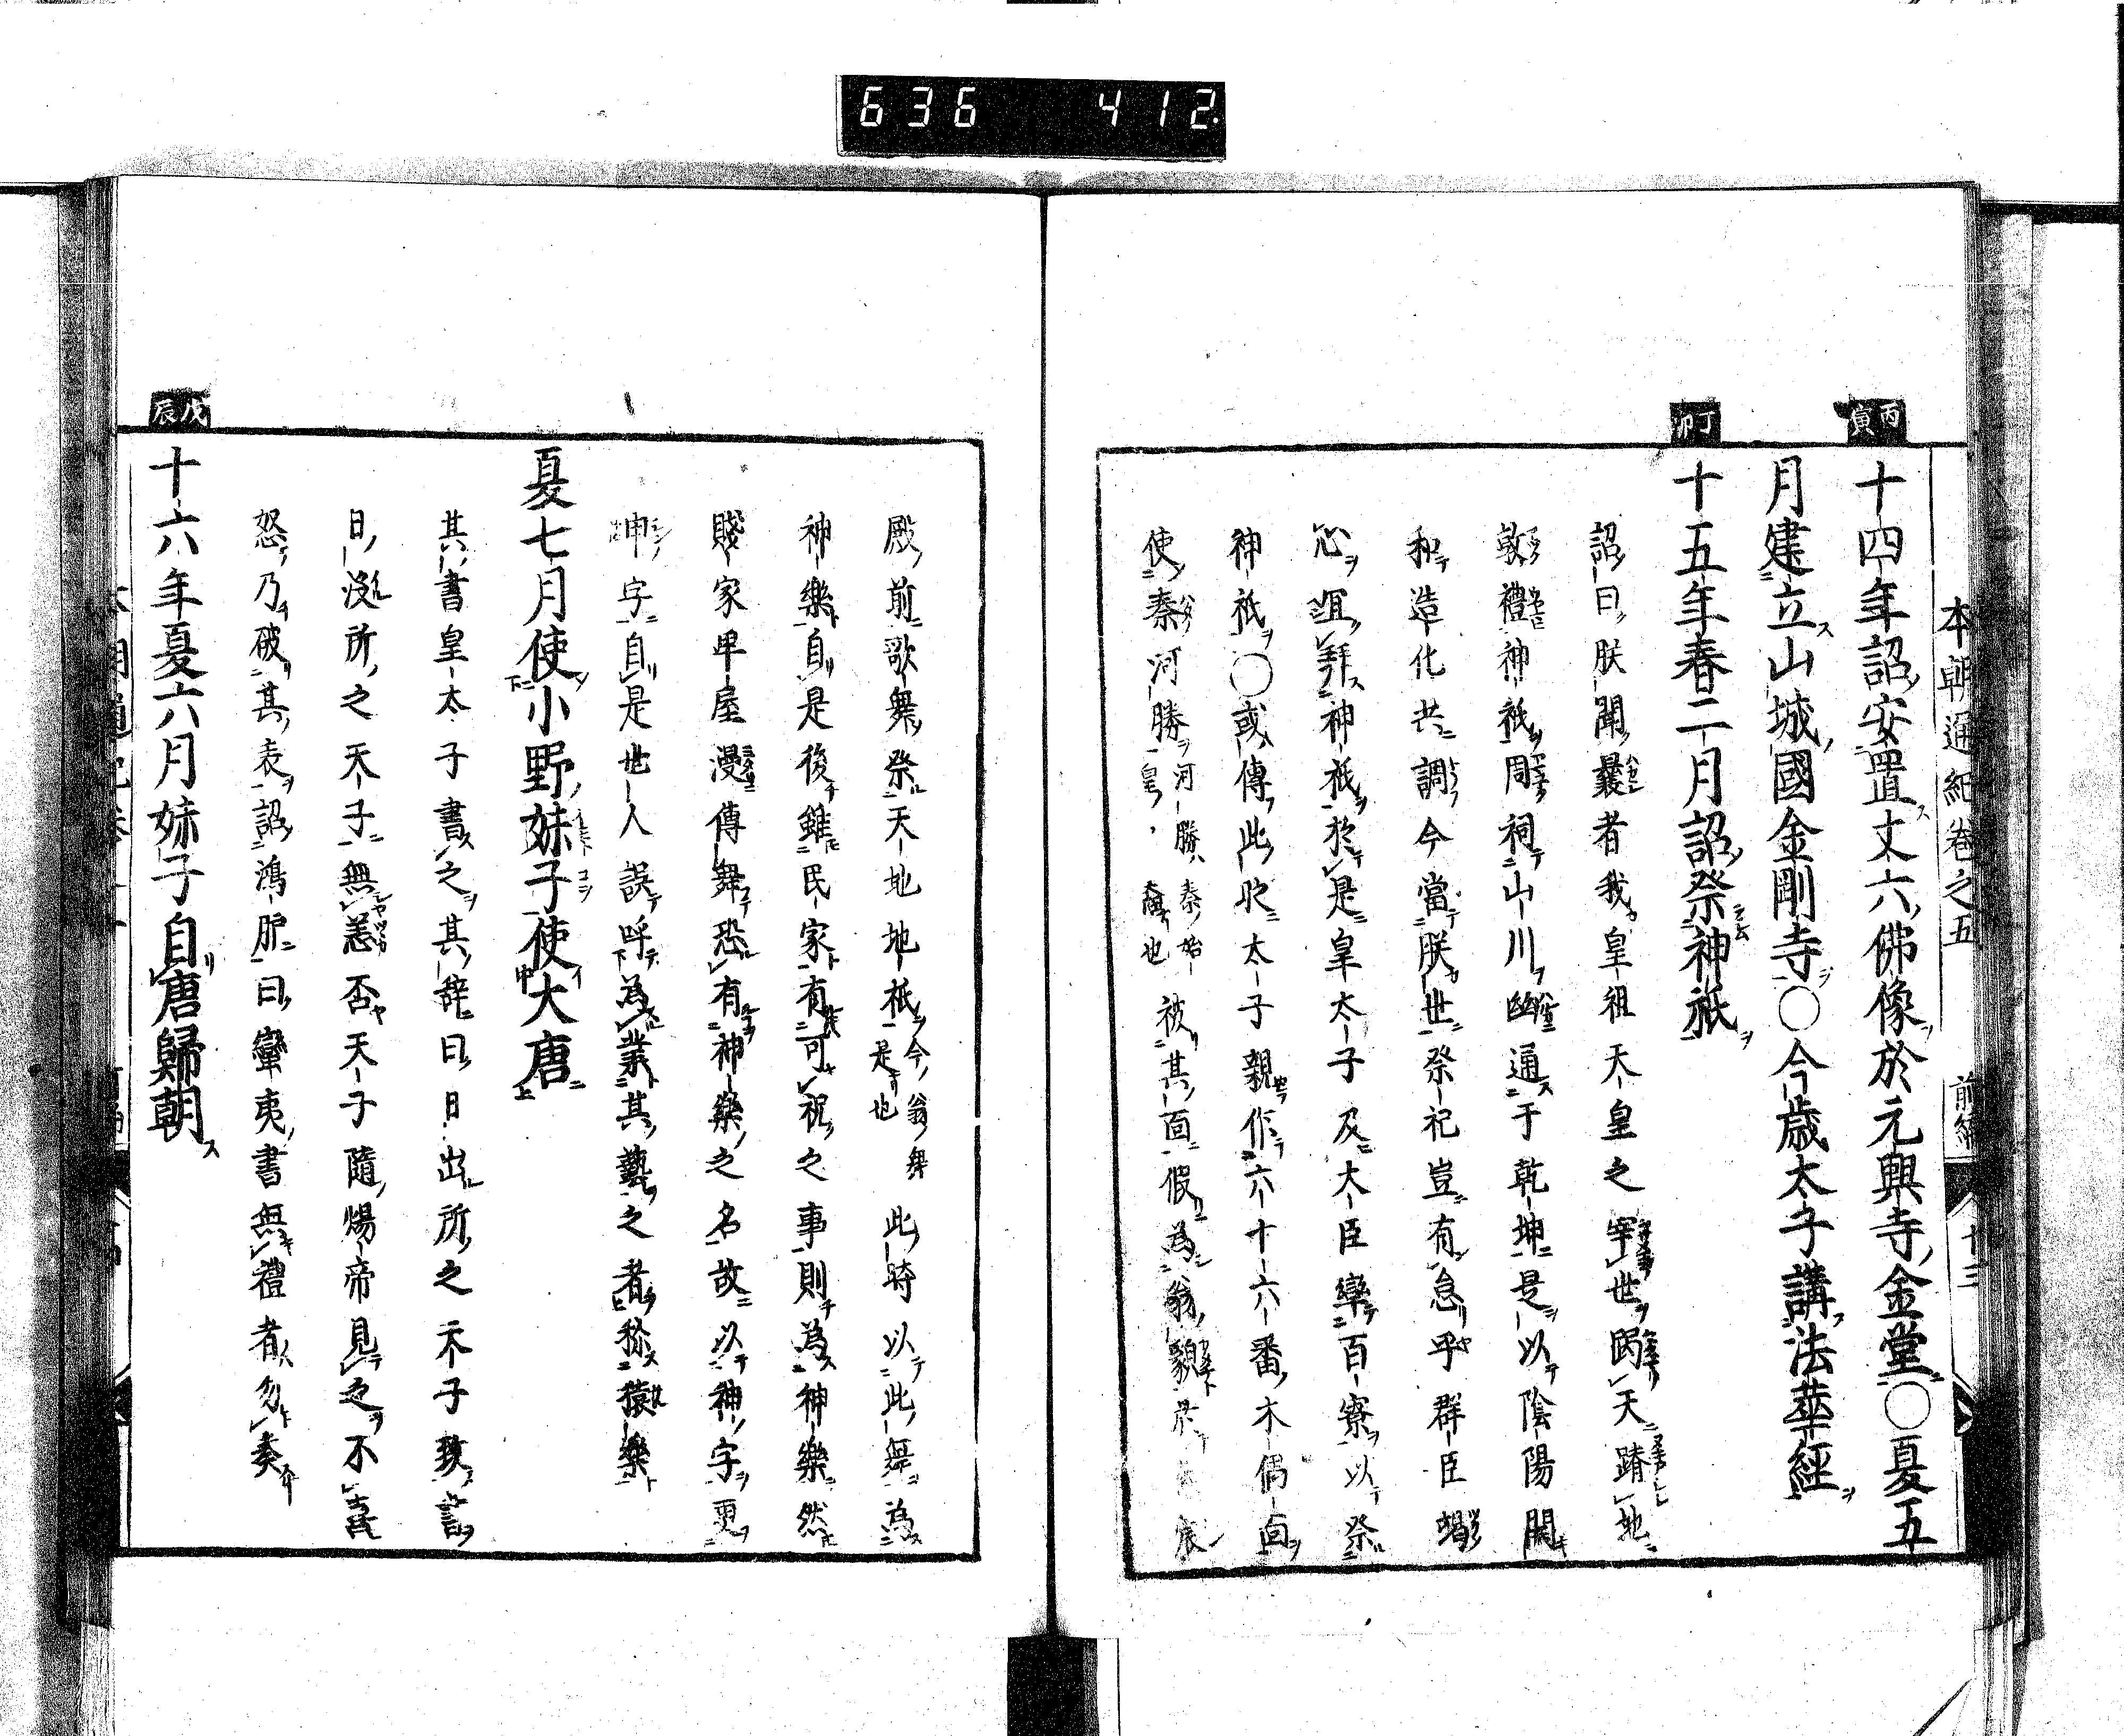 636 412
本朝通紀卷之五 前編 十三
丙寅
十四年詔安置丈六佛像於元興寺金堂○夏五
月建立山城國金剛寺○今歳太子講法華經
丁卯
十五年春二月詔祭神祇
詔曰朕聞曩者我皇祖天皇之宰世跼天蹐地
敦禮神祇周祠山川幽通于乾坤是以陰陽開
和造化共調今當朕世祭祀豈有怠乎群臣竭
心宜拜神祇於是皇太子及大臣率百寮以祭
神祇○或傳此時太子親作六十六番木偶面
使秦河勝河勝秦始皇裔也被其面假為翁貌於
殿前歌舞祭天地地祇今翁舞是也此時以此舞為
神樂自是後雖民家有可祝之事則為神樂然
賤家卑屋漫傳舞恐有神樂之名故以神字更
申字自是世人誤呼為業其藝之者称猿樂
夏七月使小野妹子使大唐
其書皇太子書之其辞曰日出所之天子致書
日没所之天子無恙否天子隋煬帝見之不喜
怒乃破其表詔鴻臚曰蠻夷書無禮者勿奏
戊辰
十六年夏六月妹子自唐歸朝